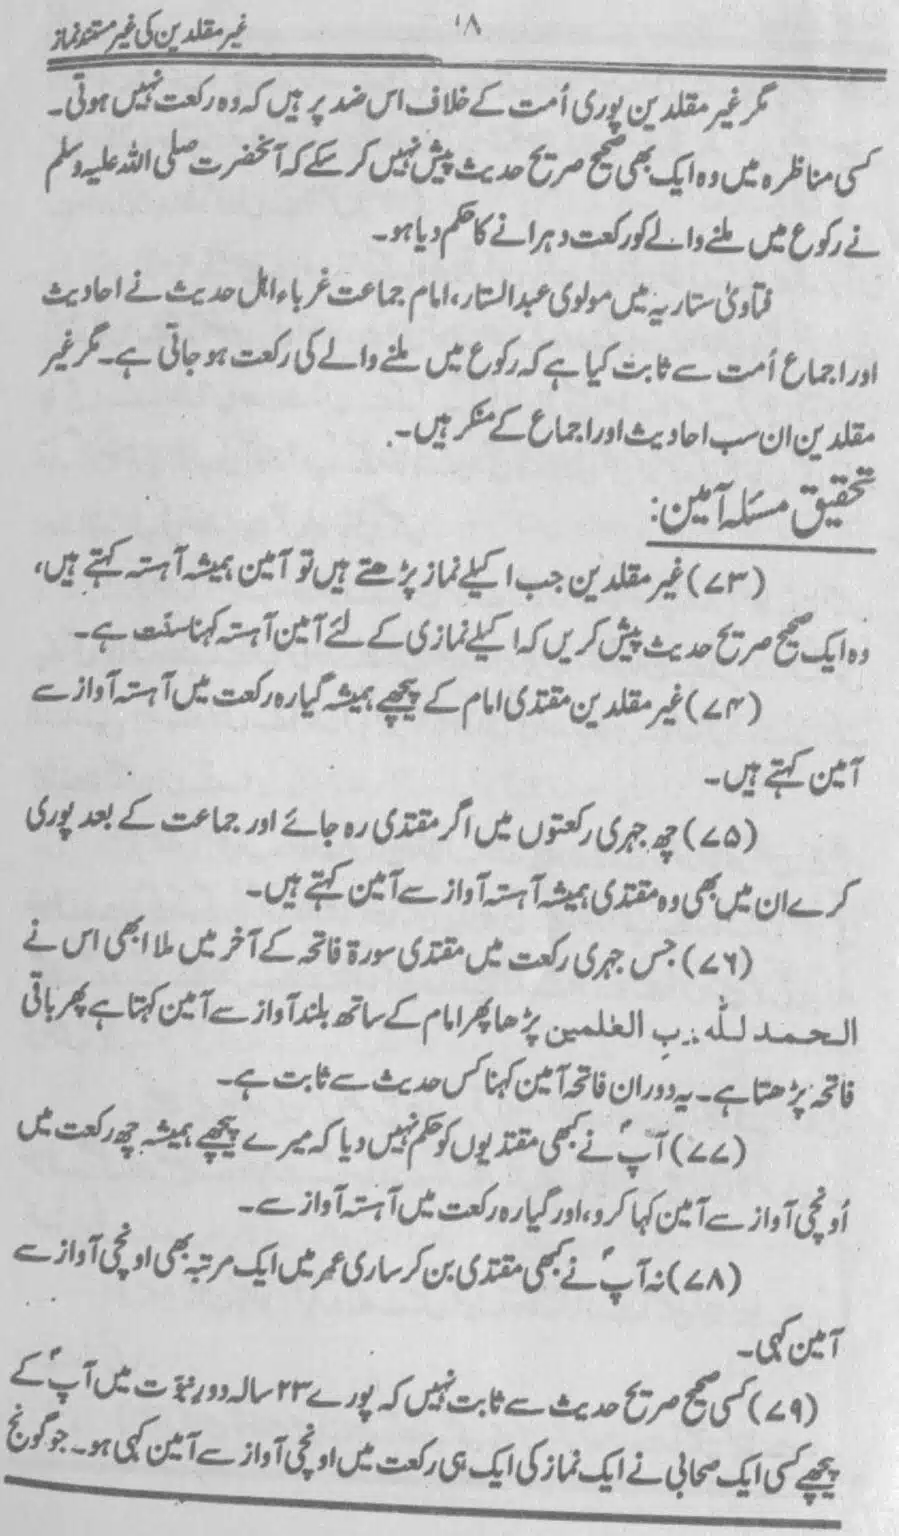 غیر مقلدین کی غیر مستند نماز
۱۸
مگر غیر مقلدین پوری اُمت کے خلاف اس ضد پر ہیں کہ وہ رکعت نہیں ہوتی۔
کسی مناظرہ میں وہ ایک بھی صحیح صریح حدیث پیش نہیں کر سکے کہ آنحضرت صلی اللہ علیہ وسلم
نے رکوع میں ملنے والے کو رکعت دہرانے کا حکم دیا ہو۔
فتاویٰ ستاریہ میں مولوی عبدالستار، امام جماعت غرباء اہل حدیث نے احادیث
اور اجماع اُمت سے ثابت کیا ہے کہ رکوع میں ملنے والے کی رکعت ہو جاتی ہے۔ مگر غیر
مقلدین ان سب احادیث اور اجماع کے منکر ہیں۔
تحقیق مسئلہ آمین:
(۷۳) غیر مقلدین جب اکیلے نماز پڑھتے ہیں تو آمین ہمیشہ آہستہ کہتے ہیں،
وہ ایک صحیح صریح حدیث پیش کریں کہ اکیلے نمازی کے لئے آمین آہستہ کہنا سنّت ہے۔
(۷۴) غیر مقلدین مقتدی امام کے پیچھے ہمیشہ گیارہ رکعت میں آہستہ آواز سے
آمین کہتے ہیں۔
(۷۵) چھ جہری رکعتوں میں اگر مقتدی رہ جائے اور جماعت کے بعد پوری
کرے ان میں بھی وہ مقتدی ہمیشہ آہستہ آواز سے آمین کہتے ہیں۔
(۷۶) جس جہری رکعت میں مقتدی سورۃ فاتحہ کے آخر میں ملا ابھی اس نے
الحمد للّٰہ رب العٰلمین پڑھا پھر امام کے ساتھ بلند آواز سے آمین کہتا ہے پھر باقی
فاتحہ پڑھتا ہے۔ یہ دوران فاتحہ آمین کہنا کس حدیث سے ثابت ہے۔
(۷۷) آپؐ نے کبھی مقتدیوں کو حکم نہیں دیا کہ میرے پیچھے ہمیشہ چھ رکعت میں
اُونچی آواز سے آمین کہا کرو، اور گیارہ رکعت میں آہستہ آواز سے۔
(۷۸) نہ آپؐ نے کبھی مقتدی بن کر ساری عمر میں ایک مرتبہ بھی اونچی آواز سے
آمین کہی۔
(۷۹) کسی صحیح صریح حدیث سے ثابت نہیں کہ پورے ۲۳ سالہ دورِ نبوّت میں آپؐ کے
پیچھے کسی ایک صحابی نے ایک نماز کی ایک ہی رکعت میں اونچی آواز سے آمین کہی ہو۔ جو گونج